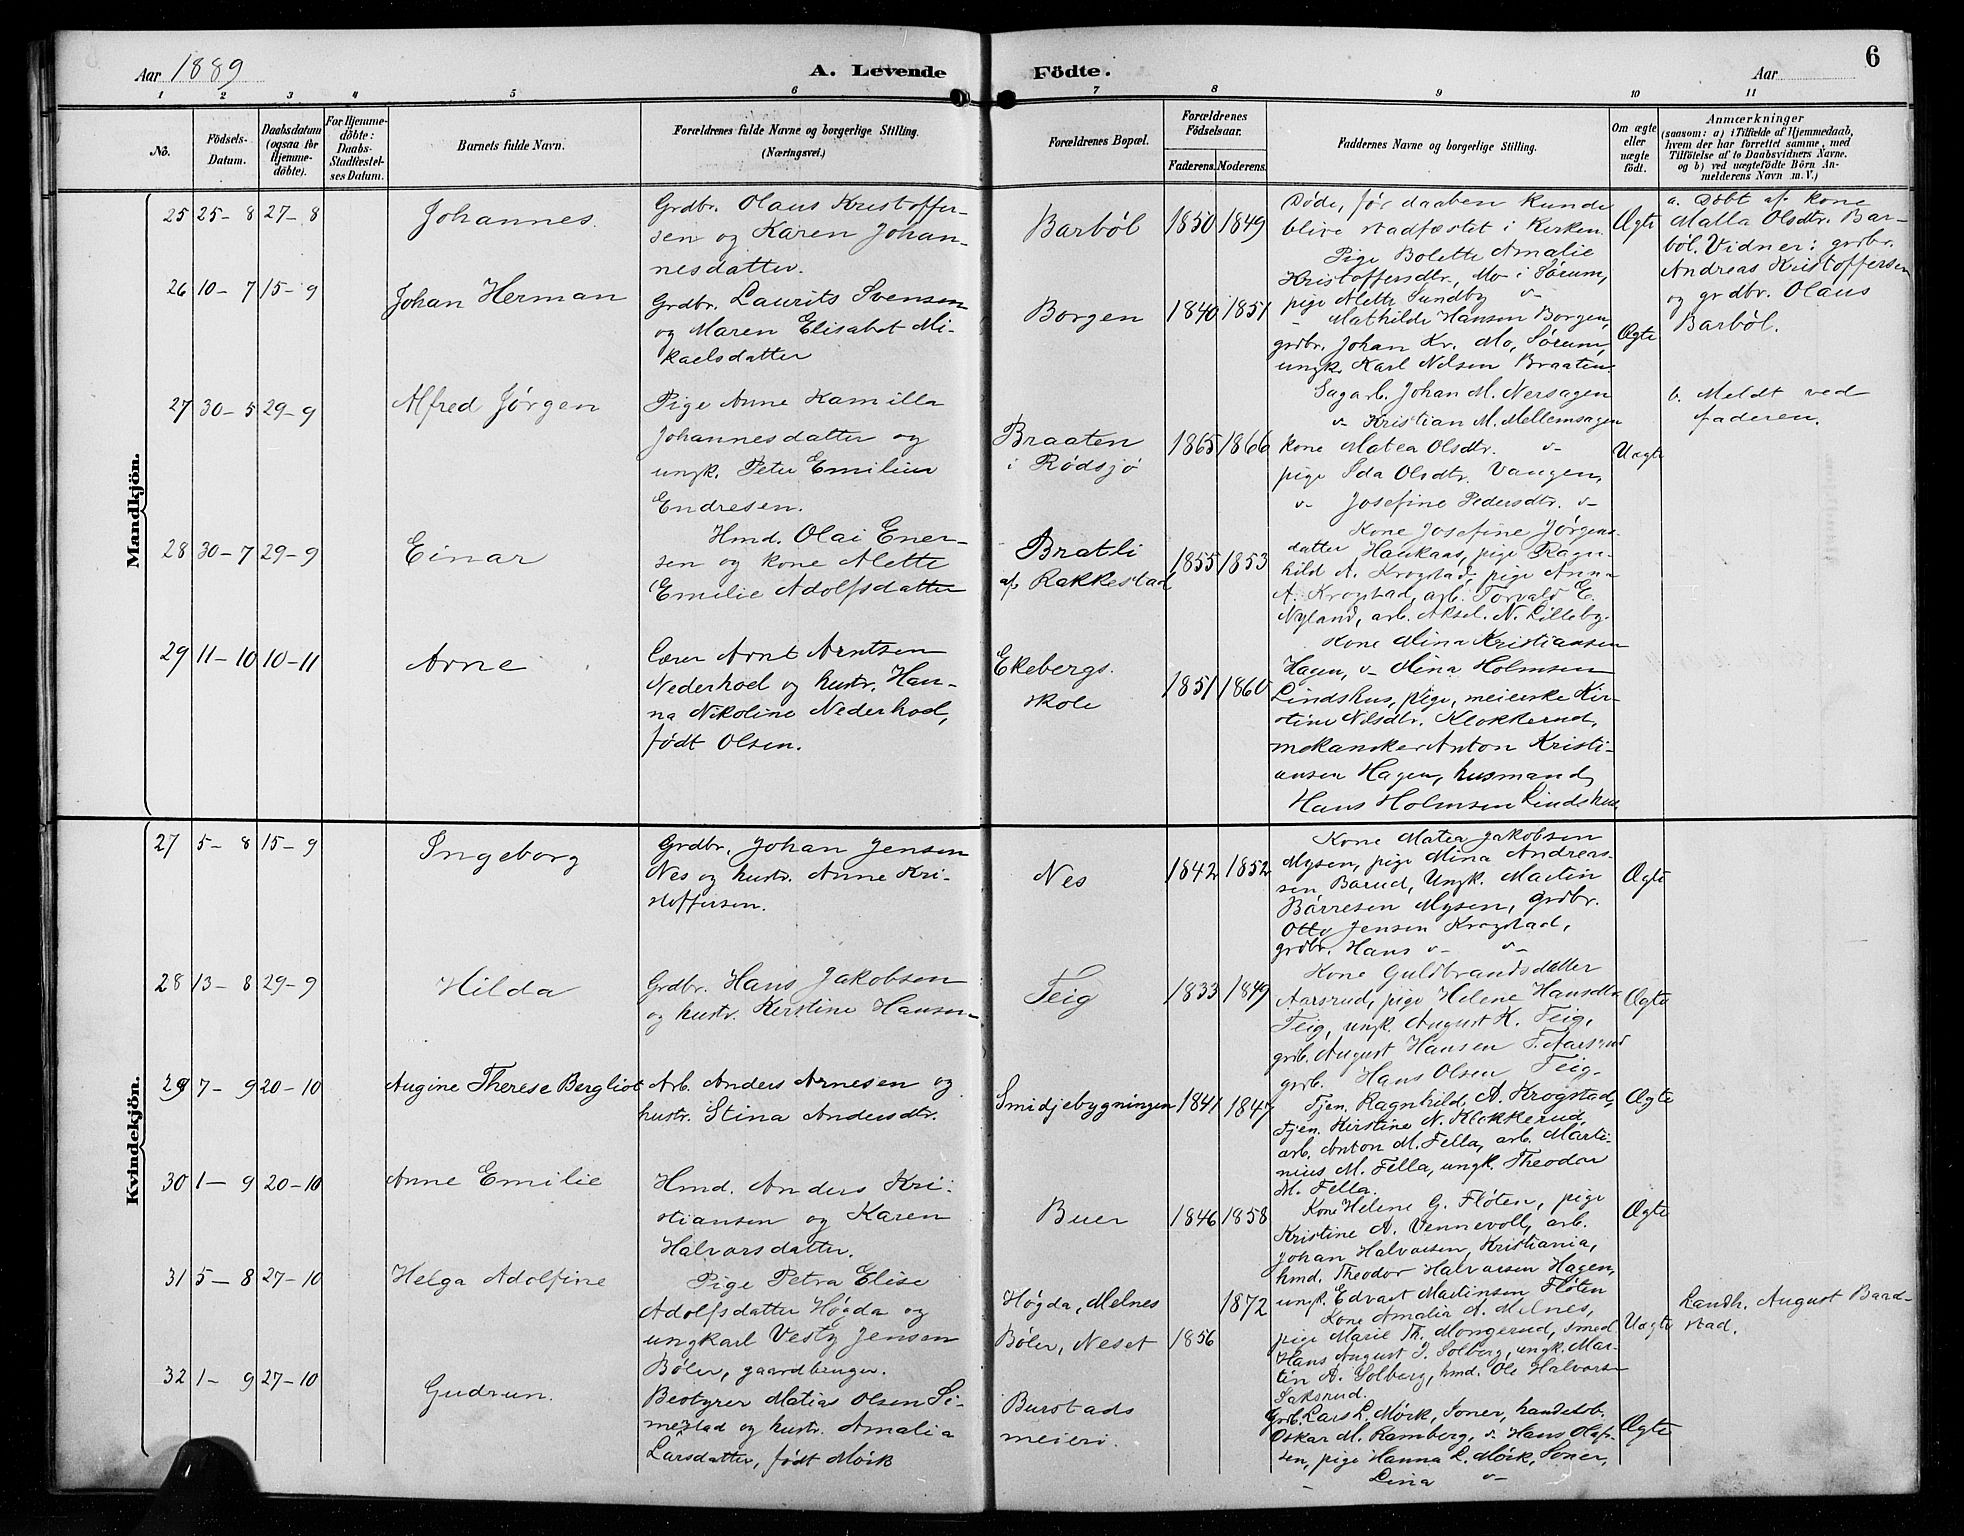 Aar 1889
A. Levende Födte.
Aar
6
1 2 3 4 5 6 7 8 9 10 11
No.
Födsels-Datum.
Daabsdatum (ogsaa for Hjemmedöbte).
For Hjemmedöbte: Daabs-Stadfestelses Datum.
Barnets fulde Navn.
Forældrenes fulde Navne og borgerlige Stilling. (Næringsvei.)
Forældrenes Bopæl.
Forældrenes Födselsaar.
Faderens. Moderens.
Faddernes Navne og borgerlige Stilling.
Om ægte eller uægte födt.
Anmærkninger
(saasom: a) i Tilfælde af Hjemmedaab, hvem der har forrettet samme, med Tilföielse af to Daabsvidners Navne. og b) ved uægtefödte Börn Anmelderens Navn m. V.)
Mandkjön.
25 25-8 27-8 Johannes.
Grdbr. Olaus Kristoffer-
sen og Karen Johan-
nesdatter.
Barböl 1850 1849
Döde, för daaben kunde
blive stadfæstet i Kirken.
Ægte
a. Döbt af kone
Malla Olsdtr. Bar-
böl. Vidner: grdbr.
Andreas Kristoffersen
og grdbr. Olaus
Barböl.
26 10-7 15-9 Johan Herman
Grdbr. Laurits Svensen
og Maren Elisabet Mi-
kaelsdatter
Borgen 1840 1851
Pige Bolette Amalie
Kristoffersdtr, Mo i Sörum,
pige Alette Sundby
Mathilde Hansen Borgen,
grdbr. Johan Kr. Mo, Sörum,
ungk. Karl Nilsen Braaten
Ægte
27 30-5 29-9 Alfred Jörgen
Pige Anne Kamilla
Johannesdatter og
ungk. Peter Emilius
Endresen.
Braaten
i Rödsjö
1865 1866
Sagarb. Johan M. Nersagen
v- Kristian M. Mellemsagen
kone Matea Olsdtr. v-
pige Ida Olsdtr. Vangen,
v- Josefine Pedersdtr. v-
Uægte
b. Meldt ved
faderen.
28 30-7 29-9 Einar
Hmd. Olai Ener-
sen og kone Alette
Emilie Adolfsdatter
Bratli
af Rakkestad
1855 1853
Kone Josefine Jörgens-
datter Haukaas, pige Ragn-
hild A. Krogstad, pige Anna
A. Krogstad, arb. Torvald E.
Nyland, arb. Aksel N. Lilleby.
29 11-10 10-11 Arne
Lærer Arnt Arntsen
Nederhoel og hustr. Han-
na Nikoline Nederhoel,
födt Olsen.
Ekebergs.
skole
1851 1860
Kone Mina Kristiansen
Hagen, v- Mina Holmsen
Lindshus, pige, meierske Kir-
stine Nilsdtr. Klokkerud,
mekansker Anton Kristi-
ansen Hagen, husmand
Hans Holmsen Lindshus
Kvindekjön.
27 5-8 15-9 Ingeborg
Grdbr. Johan Jensen
Nes og hustr. Anne Kri-
stoffersen.
Nes 1842 1852
Kone Matea Jakobsen
Mysen, pige Mina Andreas-
sen, Barud, Ungk. Martin
Börresen Mysen, grdbr.
Otto Jensen Krogstad,
grdbr. Hans v- v-
Ægte
28 13-8 29-9 Hilda
Grdbr. Hans Jakobsen
og hustr. Kerstine Hansen
Teig 1833 1849
Kone Guldbrandsdatter
Aarsrud, pige Helene Hansdtr.
Teig, ungk. August H. Teig,
grb. August Hansen T. Aarsrud
grb. Hans Olsen Teig
Ægte
29 7-9 20-10 Augine Therese Bergliot
Arb. Anders Arnesen og
hustr. Stina Andersdtr.
Smidjebygningen 1841 1847
Tjen. Ragnhild A. Krogstad,
Tjen. Kerstine N. Klokkerud,
arb. Anton M. Fella, arb. Marti-
nius M. Fella, ungk. Theodor
M. Fella.
Ægte
30 1-9 20-10 Anne Emilie
Hmd. Anders Kri-
stiansen og Karen
Halvorsdatter.
Buer 1846 1858
Kone Helene G. Flöten, pige
Kristine A. Vennevold, arb.
Johan Halvorsen, Kristiania,
hmd. Theodor Halvorsen Hagen,
ungk. Edvart Martinsen Flöten
Ægte
31 5-8 27-10 Helga Adolfine
Pige Petra Elise
Adolfsdatter Högda og
ungkarl Vesty Jensen
Böler, gaardbruger.
Högda, Melnes 1872
Böler, Neset 1856
Kone Amalia A. Melnes,
pige Marie Th. Mongerud, smed
Hans August J. Solberg, ungk. Mar-
tin A. Solberg, hmd. Ole Halvorsen
Saksrud.
Uægte
Landh. August Bard-
stad.
32 1-9 27-10 Gudrun.
Bestyrer Matias Olsen Si-
mestad og hustr. Amalia
Larsdatter, födt Mörk
Burstads
meieri.
Grb. Lars L. Mörk, Soner, handelsb.
Oskar M. Ramberg, v- Hans Olaf-
sen, pige Hanna L. Mörk, Soner,
- Lina v-
Ægte